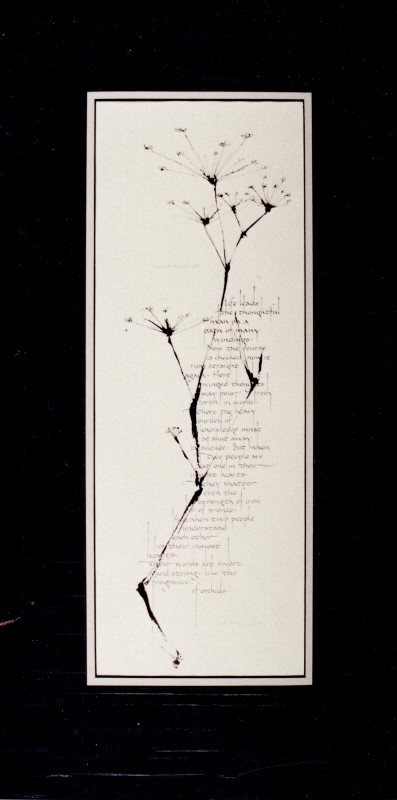 Life leads
the thoughtful
man on a
path of many
windings.
Now the course
is checked now it
runs straight
again. Here
winged thoughts
may pour from
forth in words
there the heavy
burden of
knowledge must
be shut away
in silence. But when
two people are
at one in their
inmost hearts
they shatter
even the
strength of iron
or of bronze.
And when two people
understand
each other
in their inmost
hearts
their words are sweet
and strong, like the
fragrance
of orchids.